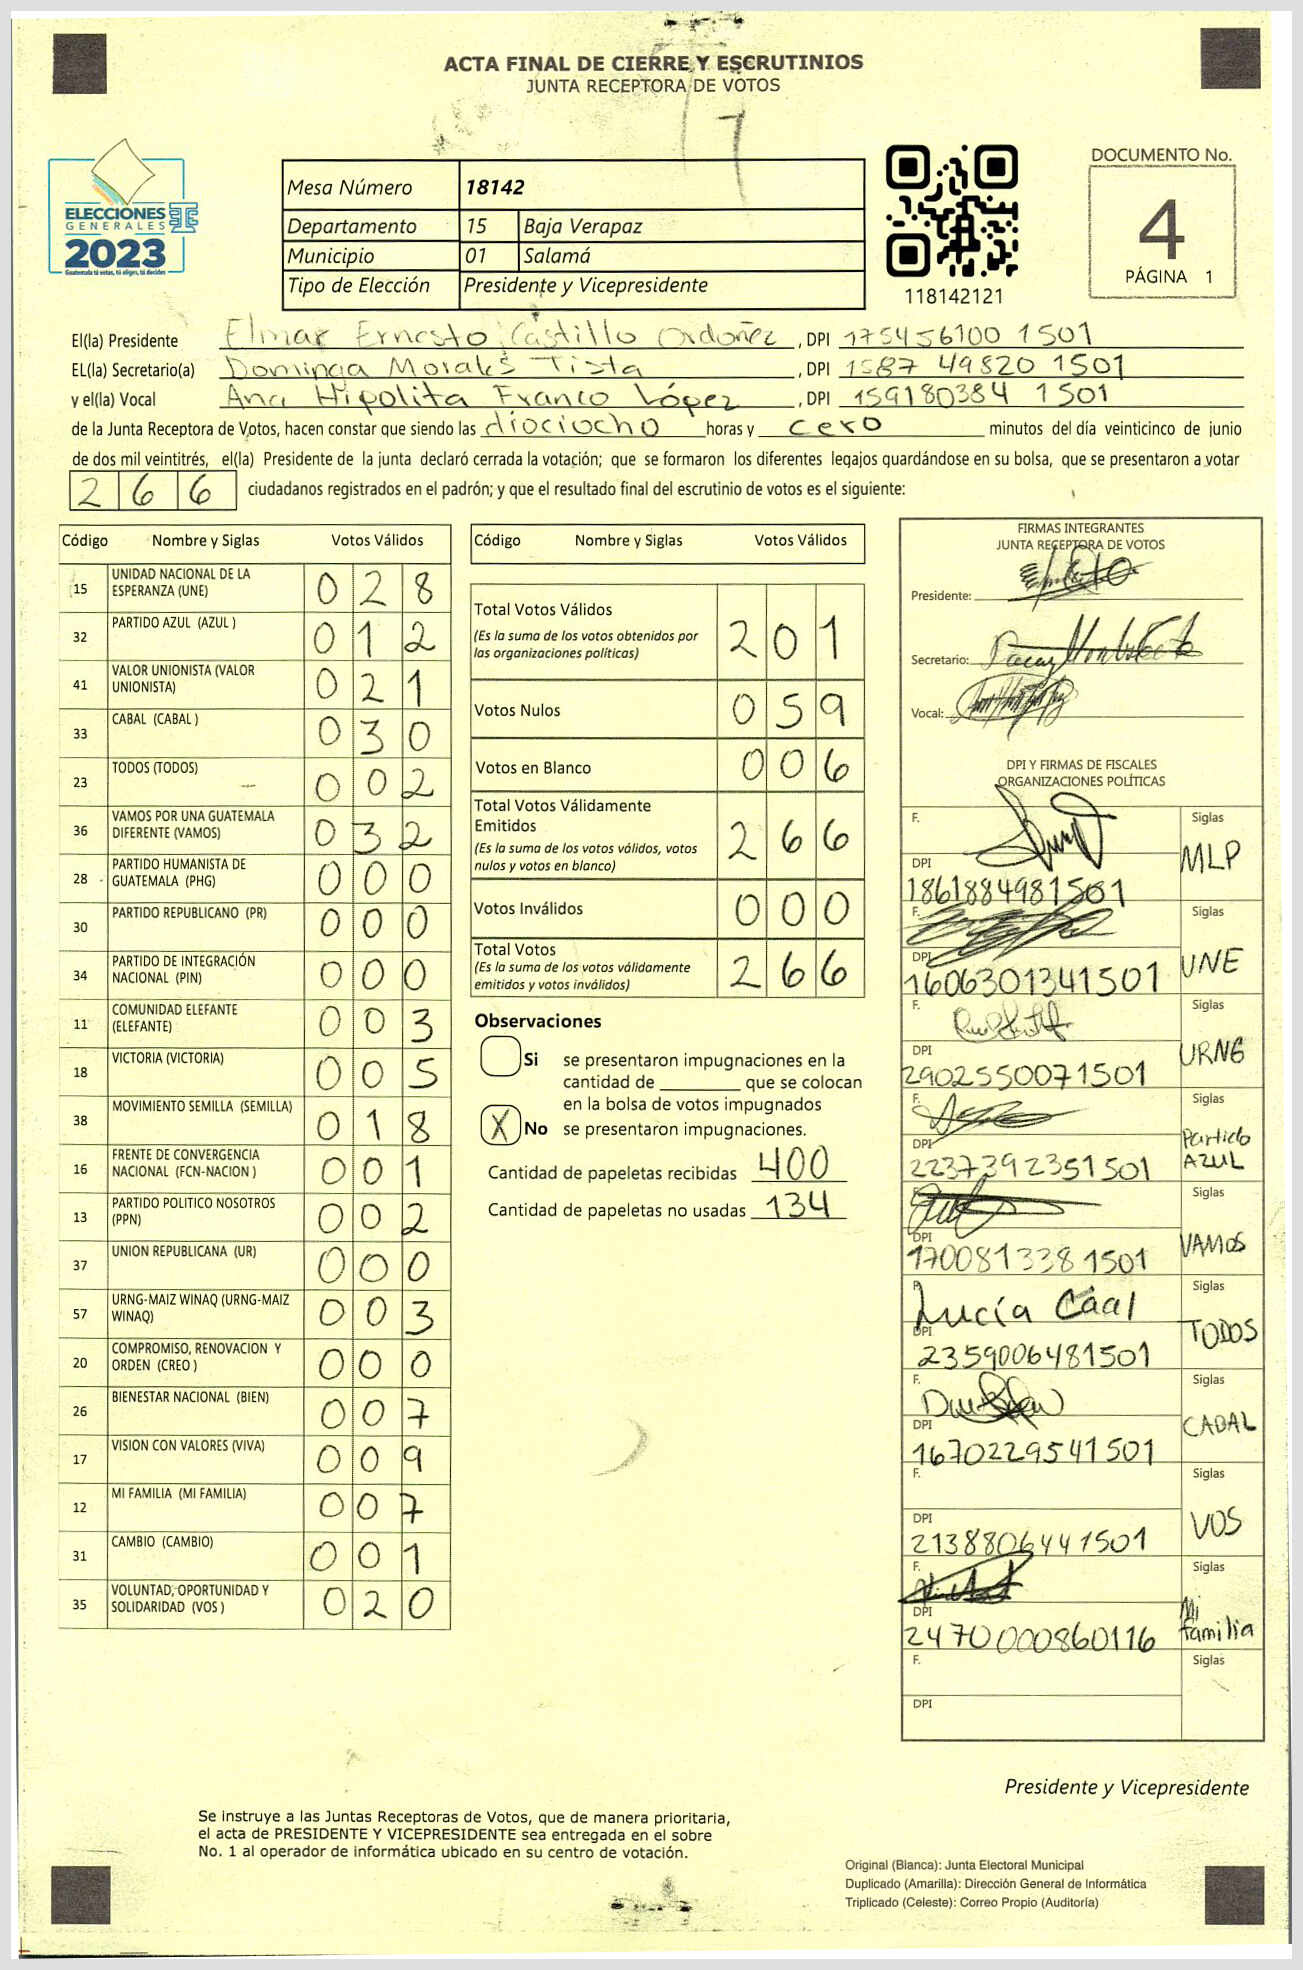 ACTA FINAL DE CIERRE Y ESCRUTINIOS
JUNTA RECEPTORA DE VOTOS
ELECCIONES
GENERALES
2023
Guatemala tú votas, tú eliges, tú decides
Mesa Número 18142
Departamento 15 Baja Verapaz
Municipio 01 Salamá
Tipo de Elección Presidente y Vicepresidente
118142121
DOCUMENTO No.
4
PÁGINA 1
El(la) Presidente Elmar Ernesto Castillo Ordoñez, DPI 175456100 1501
EL(la) Secretario(a) Dominga Morales Tista, DPI 1587 49820 1501
y el(la) Vocal Ana Hipolita Franco López, DPI 159180384 1501
de la Junta Receptora de Votos, hacen constar que siendo las diociocho horas y cero minutos del día veinticinco de junio
de dos mil veintitrés, el(la) Presidente de la junta declaró cerrada la votación; que se formaron los diferentes legajos guardándose en su bolsa, que se presentaron a votar
266 ciudadanos registrados en el padrón; y que el resultado final del escrutinio de votos es el siguiente:
Código Nombre y Siglas Votos Válidos
15 UNIDAD NACIONAL DE LA ESPERANZA (UNE) 028
32 PARTIDO AZUL (AZUL ) 012
41 VALOR UNIONISTA (VALOR UNIONISTA) 021
33 CABAL (CABAL ) 030
23 TODOS (TODOS) 002
36 VAMOS POR UNA GUATEMALA DIFERENTE (VAMOS) 032
28 PARTIDO HUMANISTA DE GUATEMALA (PHG) 000
30 PARTIDO REPUBLICANO (PR) 000
34 PARTIDO DE INTEGRACIÓN NACIONAL (PIN) 000
11 COMUNIDAD ELEFANTE (ELEFANTE) 003
18 VICTORIA (VICTORIA) 005
38 MOVIMIENTO SEMILLA (SEMILLA) 018
16 FRENTE DE CONVERGENCIA NACIONAL (FCN-NACION ) 001
13 PARTIDO POLITICO NOSOTROS (PPN) 002
37 UNION REPUBLICANA (UR) 000
57 URNG-MAIZ WINAQ (URNG-MAIZ WINAQ) 003
20 COMPROMISO, RENOVACION Y ORDEN (CREO ) 000
26 BIENESTAR NACIONAL (BIEN) 007
17 VISION CON VALORES (VIVA) 009
12 MI FAMILIA (MI FAMILIA) 007
31 CAMBIO (CAMBIO) 001
35 VOLUNTAD, OPORTUNIDAD Y SOLIDARIDAD (VOS ) 020
Código Nombre y Siglas Votos Válidos
Total Votos Válidos 201
(Es la suma de los votos obtenidos por
las organizaciones políticas)
Votos Nulos 059
Votos en Blanco 006
Total Votos Válidamente
Emitidos 266
(Es la suma de los votos válidos, votos
nulos y votos en blanco)
Votos Inválidos 000
Total Votos 266
(Es la suma de los votos válidamente
emitidos y votos inválidos)
Observaciones
Si se presentaron impugnaciones en la
cantidad de ________ que se colocan
en la bolsa de votos impugnados
X No se presentaron impugnaciones.
Cantidad de papeletas recibidas 400
Cantidad de papeletas no usadas 134
FIRMAS INTEGRANTES
JUNTA RECEPTORA DE VOTOS
Presidente:
Secretario:
Vocal:
DPI Y FIRMAS DE FISCALES
ORGANIZACIONES POLÍTICAS
F. Siglas
DPI MLP
1861884981501
F. Siglas
DPI UNE
1606301341501
F. Siglas
DPI URNG
2902550071501
F. Siglas
DPI Partido AZUL
2237392351501
F. Siglas
DPI VAMOS
1700813381501
F. Lucía Caal Siglas
DPI TODOS
2359006481501
F. Siglas
DPI CABAL
1670229541501
F. Siglas
DPI VOS
2138806441501
F. Siglas
DPI Mi familia
2470000860116
F. Siglas
DPI
Presidente y Vicepresidente
Se instruye a las Juntas Receptoras de Votos, que de manera prioritaria,
el acta de PRESIDENTE Y VICEPRESIDENTE sea entregada en el sobre
No. 1 al operador de informática ubicado en su centro de votación.
Original (Blanca): Junta Electoral Municipal
Duplicado (Amarilla): Dirección General de Informática
Triplicado (Celeste): Correo Propio (Auditoría)